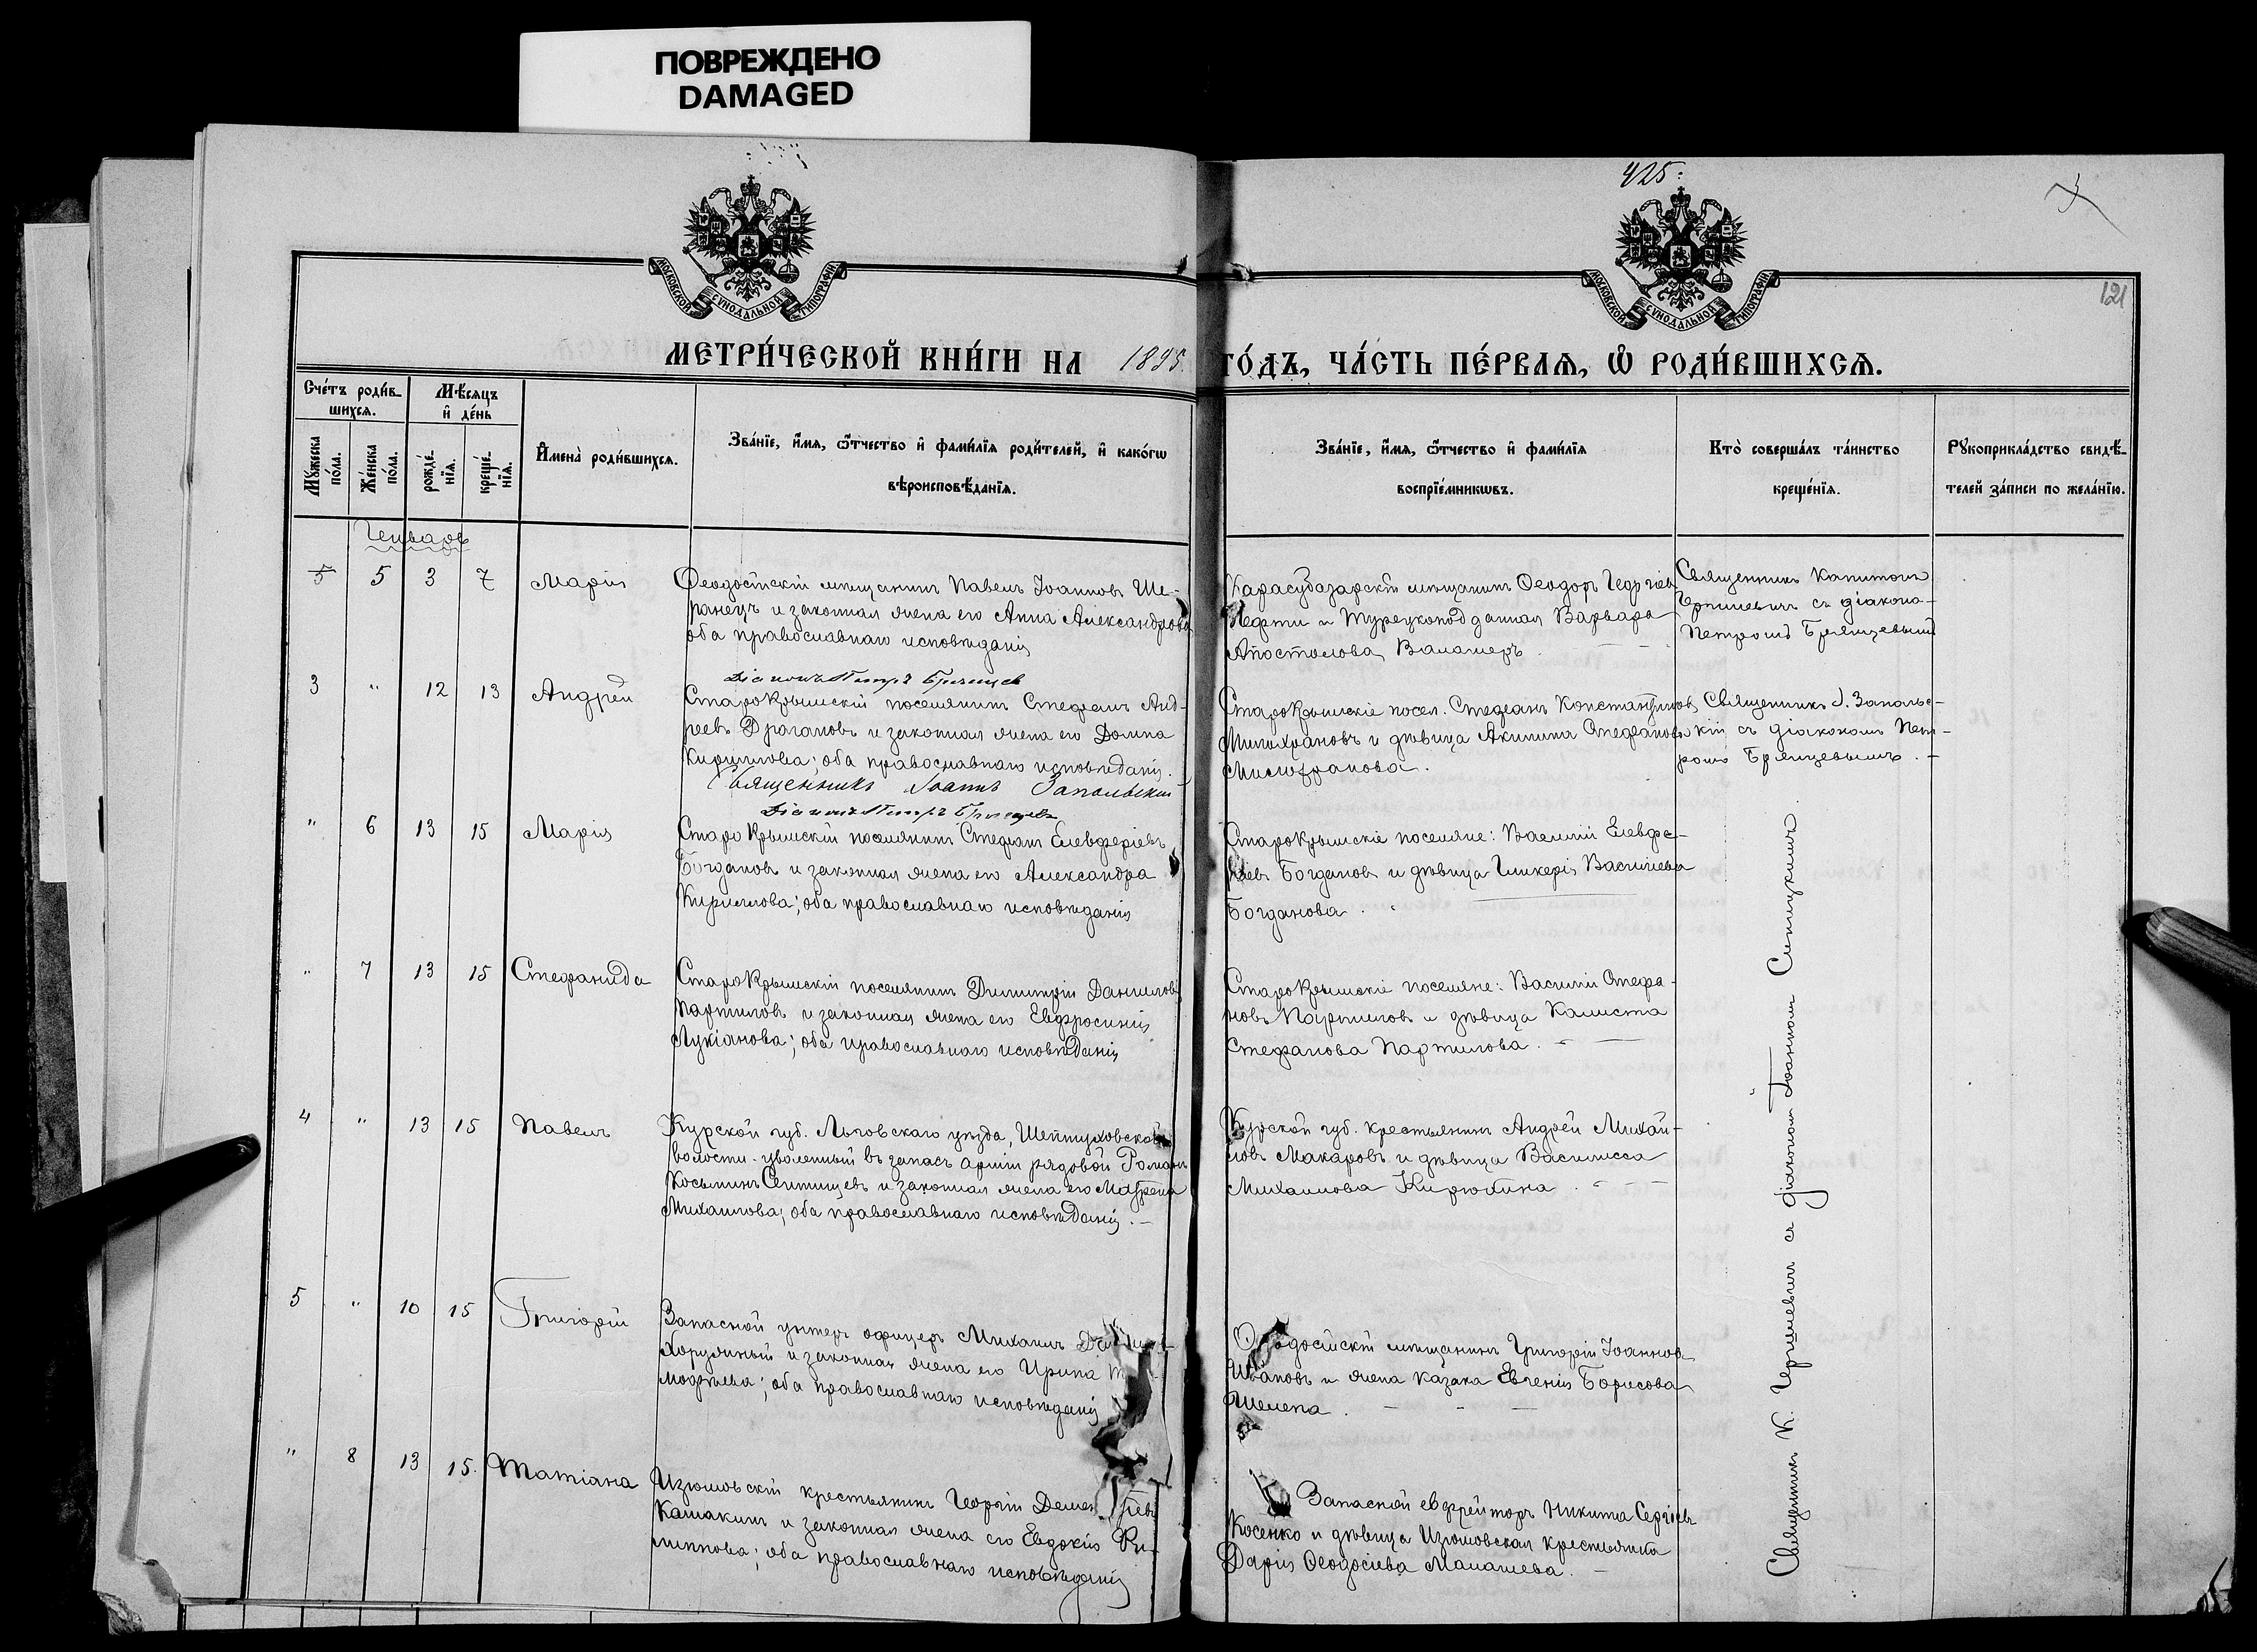 ПОВРЕЖДЕНО
DAMAGED
425.
121
МОСКОВСКОЙ СѴНОДАЛЬНОЙ ТИПОГРАФІИ
МОСКОВСКОЙ СѴНОДАЛЬНОЙ ТИПОГРАФІИ
МЕТРИ́ЧЕСКОЙ КНИ́ГИ НА 1895 ГО́ДЪ, ЧА́СТЬ ПЕ́РВАЯ, Ѡ РОДИ́ВШИХСЯ.
Сче́тъ роди́в-
шихся.
Му́жеска
по́ла.
Же́нска
по́ла.
Мѣ́сяцъ
и де́нь
рожде́-
нїя.
креще́-
нїя.
Имена̀ роди́вшихся.
Зва́нїе, и́мя, ѻ҆́тчество и фами́лїя роди́телей, и како́гѡ
вѣроисповѣ́данїя.
Зва́нїе, и́мя, ѻ҆́тчество и фами́лїя
воспрїе́мникѡвъ.
Кто̀ соверша́лъ та́инство
креще́нїя.
Рукоприкла́дство свидѣ́-
телей за́писи по жела́нїю.
Генварь
5 5 3 7 Марія
Ѳеодосійскій мѣщанинъ Павелъ Іоанновъ Ше-
ранецъ и законная жена его Анна Александрова
оба православнаго исповѣданія
Карасубазарскій мѣщанинъ Ѳеодоръ Георгіевъ
Нефти и Турецкоподданная Варвара
Апостолова
Священникъ Капитонъ
Чернилевичъ съ діакона-
Петромъ Брянцевымъ
Діаконъ Петръ Брянцевъ
3 " 12 13 Андрей
Старокрымскій поселянинъ Стефанъ Анд-
реевъ Драгановъ и законная жена его Домна
Кириллова; оба православнаго исповѣданія.
Старокрымскіе посел. Стефанъ Константиновъ
и дѣвица Акилина Стефанова
Священникъ І. Запольс-
кій съ діакономъ Пет-
ромъ Брянцевымъ. -
Священникъ Іоаннъ Запольскій
Діаконъ Петръ Брянцевъ
" 6 13 15 Марія
Старо Крымскій поселянинъ Стефанъ Елевферіевъ
Богдановъ и законная жена его Александра
Кириллова; оба православнаго исповѣданія
Старокрымскіе поселяне: Василій Елевфе-
ріевъ Богдановъ и дѣвица Гликерія Васильева
Богданова.
" 7 13 15 Стефанида
Старо Крымскій поселянинъ Димитрій Даниловъ
Партиловъ и законная жена его Евфросинія
Лукіанова; оба православнаго исповѣданія
Старо Крымскіе поселяне: Василій Стефа-
новъ Партиловъ и дѣвица Калиста
Стефанова Партилова.
4 " 13 15 Павелъ
Курской губ. Льговскаго уѣзда, Шептуховской
волости - уволенный въ запасъ арміи рядовой Романъ
Косьминъ и законная жена его Матрена
Михаилова; оба православнаго исповѣданія. -
Курской губ. крестьянинъ Андрей Михай-
ловъ Макаровъ и дѣвица Василисса
Михаилова Кирюхина.
5 " 10 15 Григорій
Запасной унтеръ офицеръ Михаилъ
Хорунжный и законная жена его Ирина Ти-
моѳеева; оба православнаго исповѣданія
Ѳеодосійскій мѣщанинъ Григорій Іоаннов
Ивановъ и жена казака Евгенія Борисова
Шелепа.
" 8 13 15. Татіана
Изюмовскій крестьянинъ Георгій Демен тіевъ
Калакинъ и законная жена его Евдокія Фи-
липпова; оба православнаго исповѣданія
Запасной ефрейторъ Никита Сергіевъ
Косенко и дѣвица Изюмовская крестьянка
Дарія Ѳеодосіева Малашева.
Священникъ К. Чернилевичъ съ діакономъ Іоанномъ